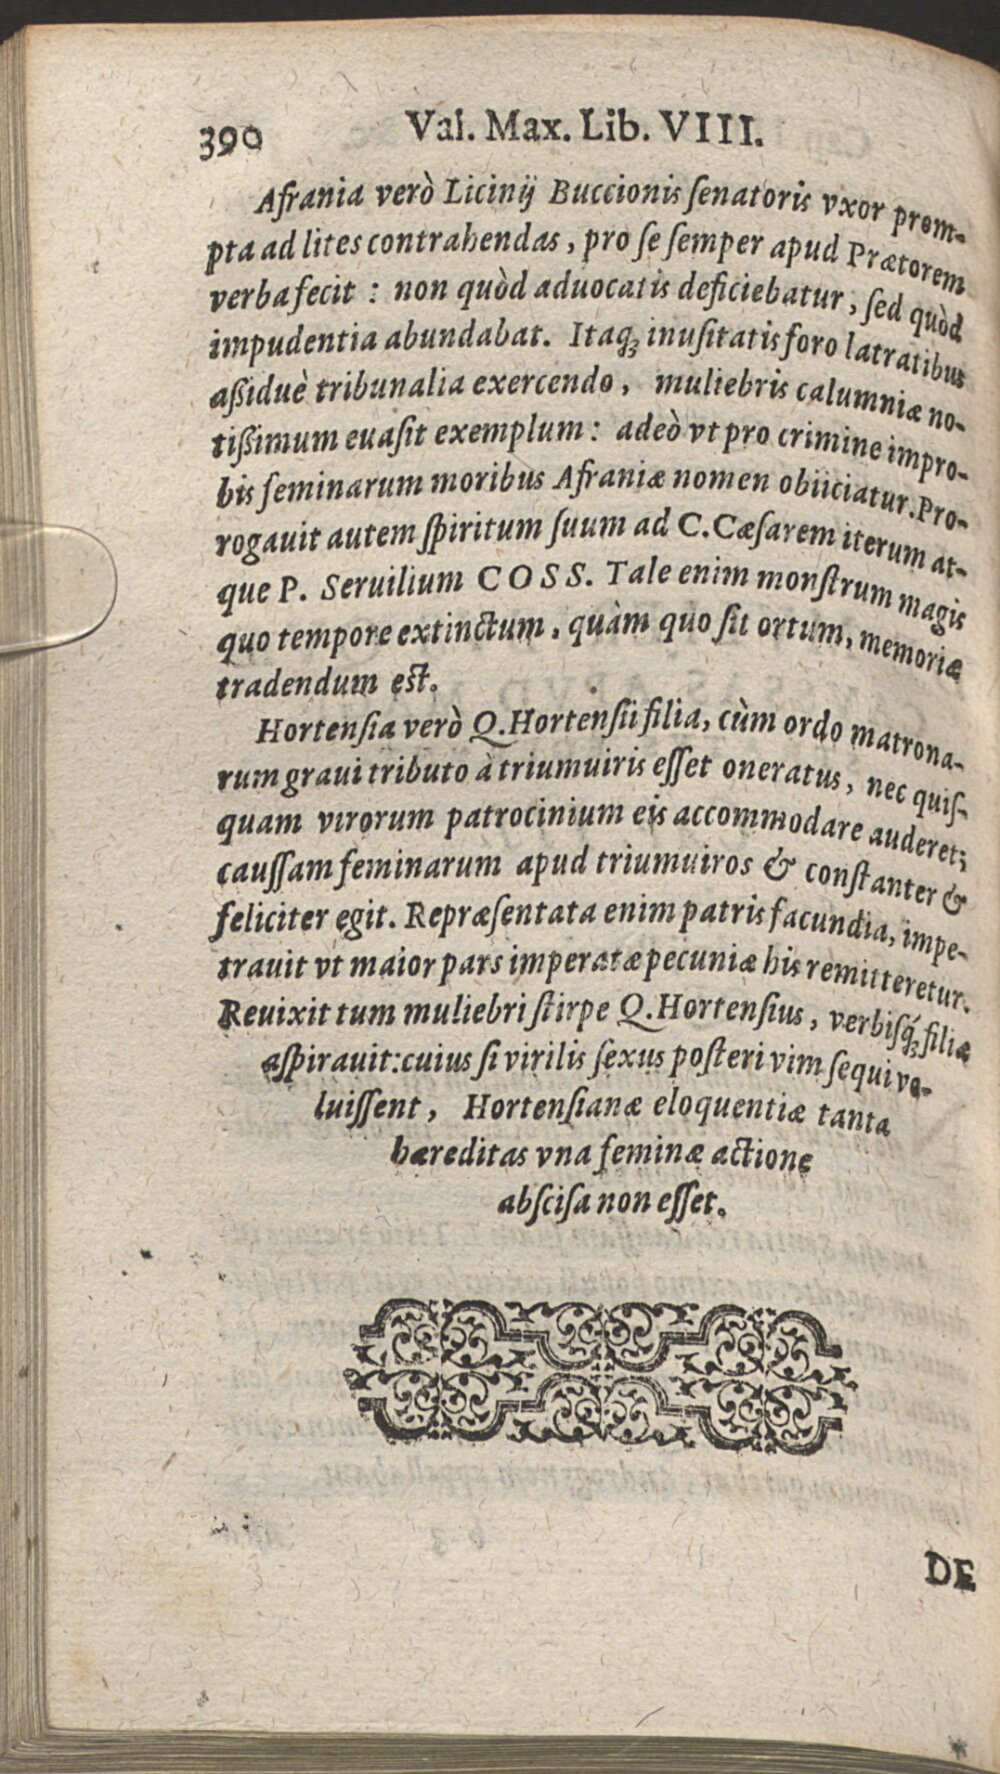 390 Val. Max. Lib. VIII.
Afrania verò Licinij Buccionis ſenatoris vxor prom-
pta ad lites contrahendas, pro ſe ſemper apud Prætorem
verba fecit : non quòd aduocatis deficiebatur, ſed quòd
impudentia abundabat. Itaq; inuſitatis foro latratibus
aßiduè tribunalia exercendo, muliebris calumniæ no-
tißimum euaſit exemplum: adeò vt pro crimine impro-
bis feminarum moribus Afraniæ nomen obiiciatur. Pro-
rogauit autem ſpiritum ſuum ad C. Cæſarem iterum at-
que P. Seruilium COSS. Tale enim monſtrum magis
quo tempore extinctum, quàm quo ſit ortum, memoriæ
tradendum eſt.
Hortenſia verò Q. Hortenſii filia, cùm ordo matrona-
rum graui tributo à triumuiris eſſet oneratus, nec quiſ-
quam virorum patrocinium eis accommodare auderet;
cauſſam feminarum apud triumuiros & conſtanter &
feliciter egit. Repræſentata enim patris facundia, impe-
trauit vt maior pars imperatæ pecuniæ his remitteretur.
Reuixit tum muliebri ſtirpe Q. Hortenſius, verbiſq́; filiæ
aſpirauit: cuius ſi virilis ſexus poſteri vim ſequi vo-
luiſſent, Hortenſianæ eloquentiæ tanta
hæreditas vna feminæ actione
abſciſa non eſſet.
DE